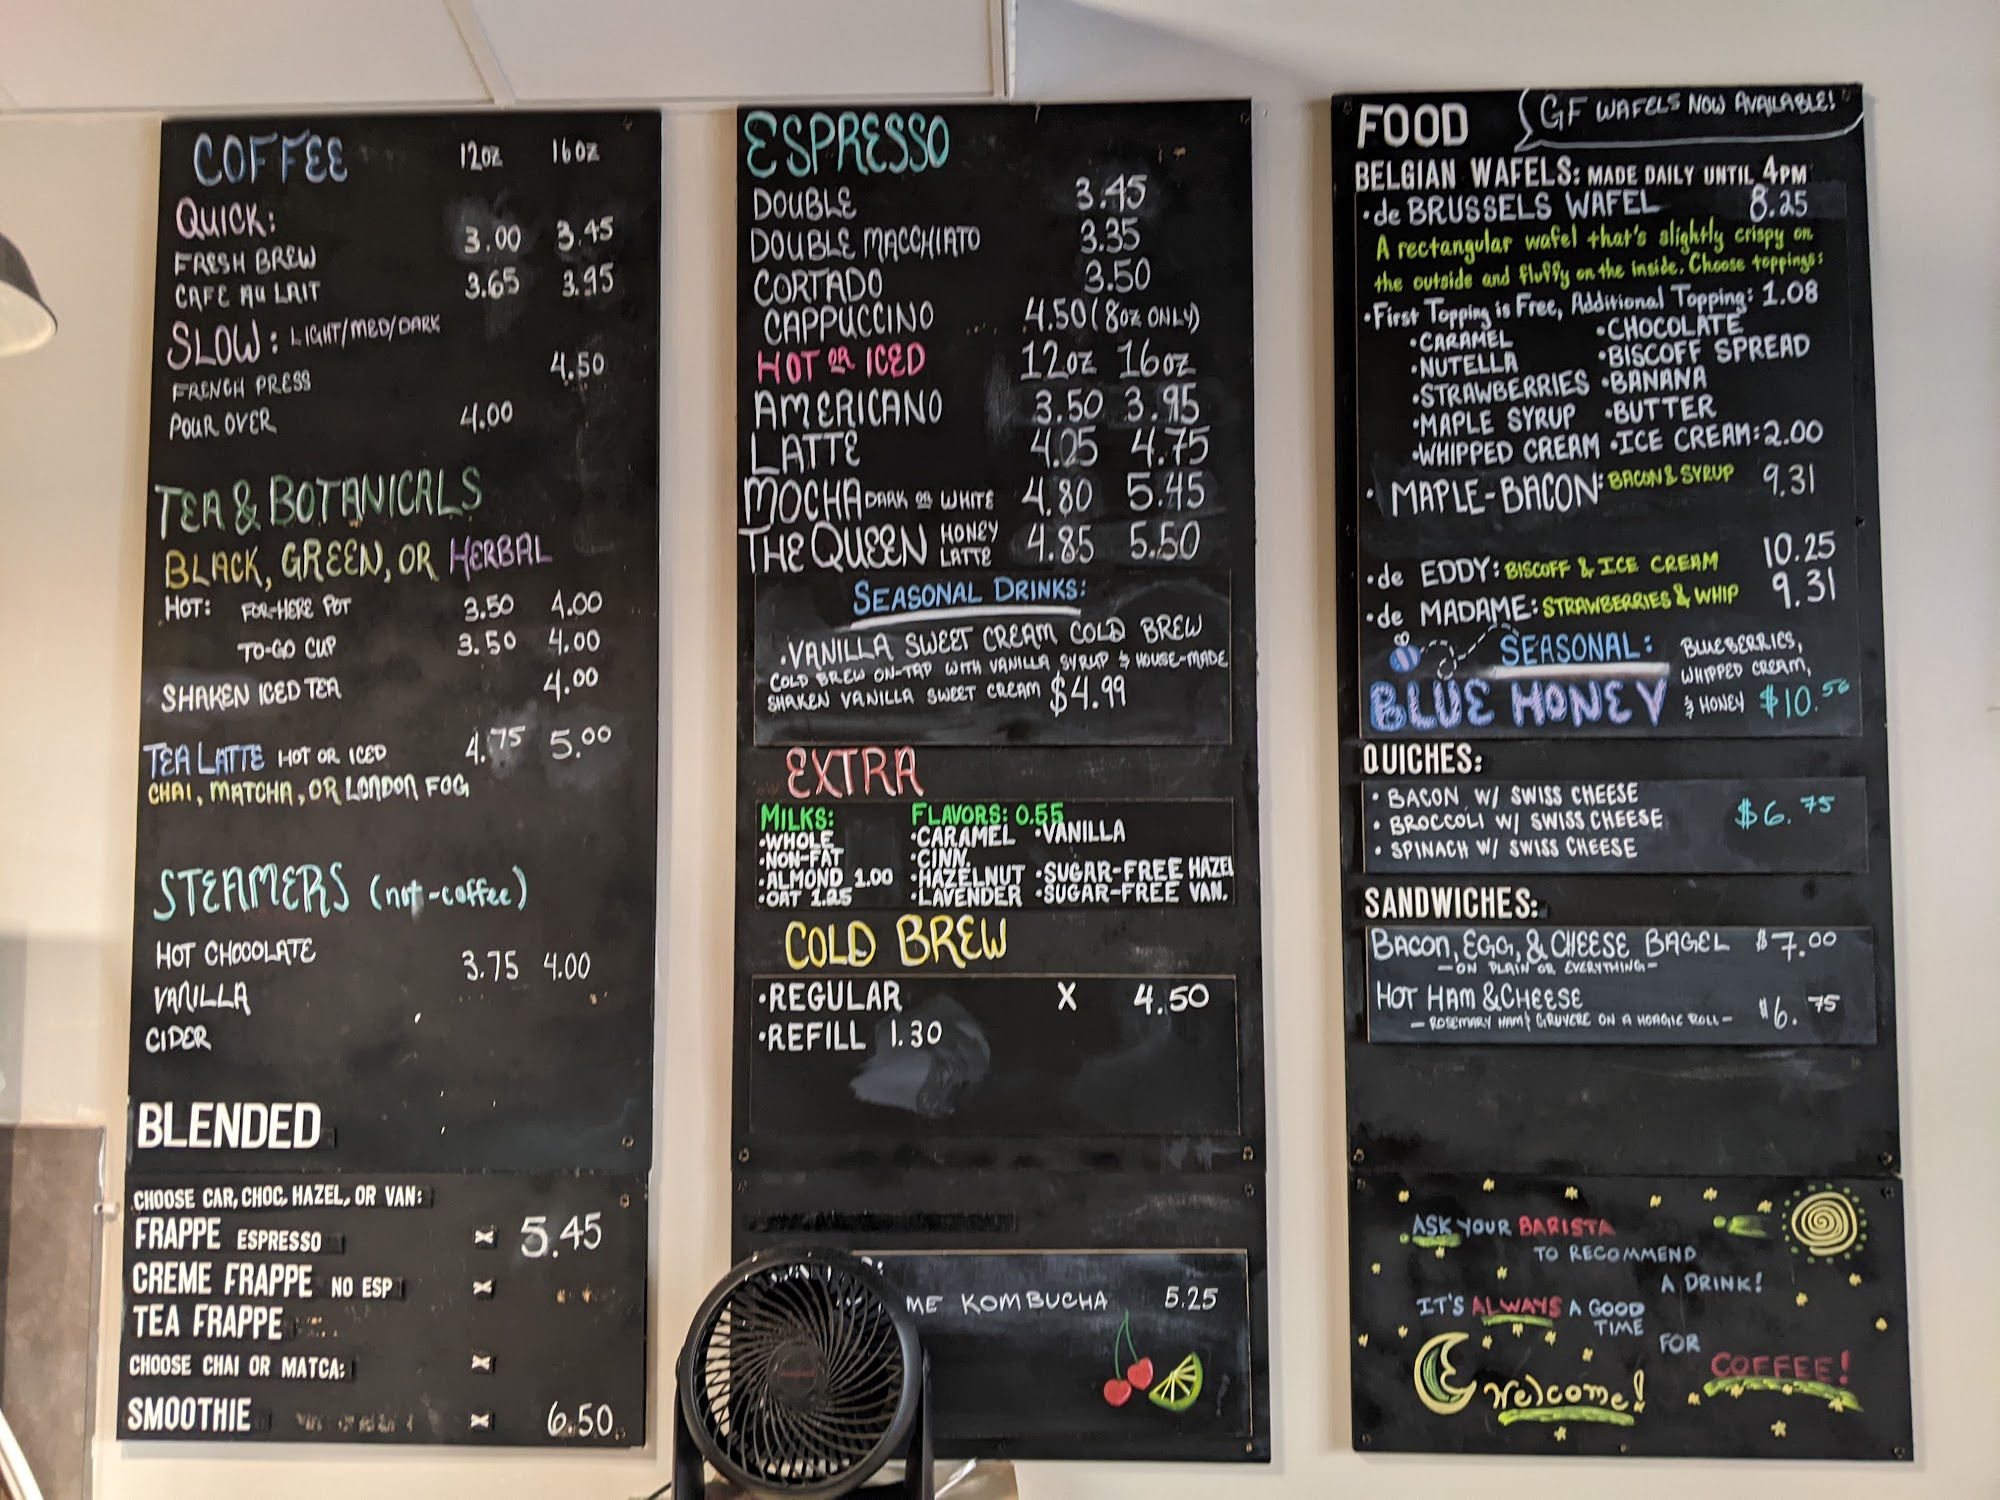 COFFEE 12OZ 16OZ
QUICK:
FRESH BREW 3.00 3.45
CAFE AU LAIT 3.65 3.95
SLOW: LIGHT/MED/DARK
FRENCH PRESS 4.50
POUR OVER 4.00
TEA & BOTANICALS
BLACK, GREEN, OR HERBAL
HOT: FOR-HERE POT 3.50 4.00
TO-GO CUP 3.50 4.00
SHAKEN ICED TEA 4.00
TEA LATTE HOT OR ICED 4.75 5.00
CHAI, MATCHA, OR LONDON FOG
STEAMERS (not-coffee)
HOT CHOCOLATE 3.75 4.00
VANILLA
CIDER
BLENDED
CHOOSE CAR, CHOC, HAZEL, OR VAN:
FRAPPE ESPRESSO X 5.45
CREME FRAPPE NO ESP X
TEA FRAPPE
CHOOSE CHAI OR MATCA: X
SMOOTHIE X 6.50
ESPRESSO
DOUBLE 3.45
DOUBLE MACCHIATO 3.35
CORTADO 3.50
CAPPUCCINO 4.50 (8OZ ONLY)
HOT OR ICED 12OZ 16OZ
AMERICANO 3.50 3.95
LATTE 4.25 4.75
MOCHA DARK OR WHITE 4.80 5.45
THE QUEEN HONEY LATTE 4.85 5.50
SEASONAL DRINKS:
•VANILLA SWEET CREAM COLD BREW
COLD BREW ON-TAP WITH VANILLA SYRUP & HOUSE-MADE
SHAKEN VANILLA SWEET CREAM $4.99
EXTRA
MILKS: FLAVORS: 0.55
•WHOLE •CARAMEL •VANILLA
•NON-FAT •CINN.
•ALMOND 1.00 •HAZELNUT •SUGAR-FREE HAZEL
•OAT 1.25 •LAVENDER •SUGAR-FREE VAN.
COLD BREW
•REGULAR X 4.50
•REFILL 1.30
ME KOMBUCHA 5.25
FOOD GF WAFELS NOW AVAILABLE!
BELGIAN WAFELS: MADE DAILY UNTIL 4PM
•de BRUSSELS WAFEL 8.25
A rectangular wafel that's slightly crispy on
the outside and fluffy on the inside. Choose toppings:
•First Topping is Free, Additional Topping: 1.08
•CARAMEL •CHOCOLATE
•NUTELLA •BISCOFF SPREAD
•STRAWBERRIES •BANANA
•MAPLE SYRUP •BUTTER
•WHIPPED CREAM •ICE CREAM: 2.00
• MAPLE-BACON: BACON & SYRUP 9.31
•de EDDY: BISCOFF & ICE CREAM 10.25
•de MADAME: STRAWBERRIES & WHIP 9.31
SEASONAL: BLUEBERRIES,
WHIPPED CREAM,
BLUE HONEY & HONEY $10.56
QUICHES:
• BACON W/ SWISS CHEESE
• BROCCOLI W/ SWISS CHEESE $6.75
• SPINACH W/ SWISS CHEESE
SANDWICHES:
BACON, EGG, & CHEESE BAGEL $7.00
—ON PLAIN OR EVERYTHING—
HOT HAM & CHEESE $6.75
—ROSEMARY HAM & GRUYERE ON A HOAGIE ROLL—
ASK YOUR BARISTA
TO RECOMMEND
A DRINK!
IT'S ALWAYS A GOOD
TIME
FOR
COFFEE!
Welcome!